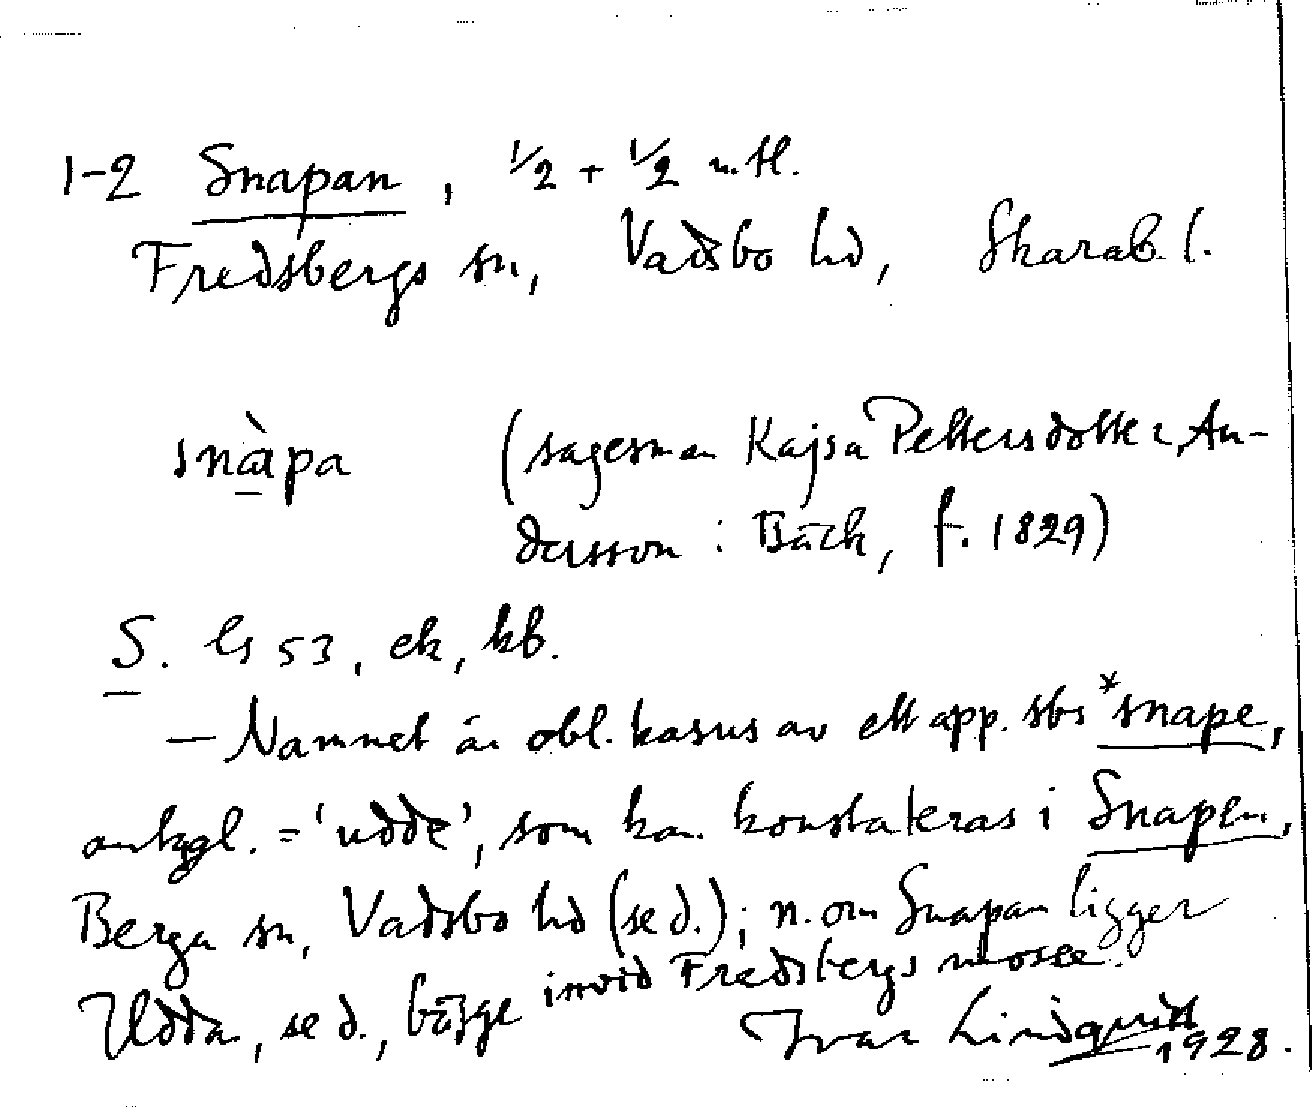 1-2 Snapan, 1/2 + 1/2 mtl.
Fredsbergs sn, Vadsbo hd, Skarab. l.
snàpa (sagesman Kajsa Pettersdotter, An-
dersson i Bäck, f. 1829)
S. ls 53, ek, kb.
— Namnet är obl. kasus av ett app. sbs *snape,
ant.gl. = 'udde', som kan konstateras i Snapen,
Berga sn, Vadsbo hd (se d.); n. om Snapan ligger
Udda, se d., bägge invid Fredsbergs mosse.
Ivar Lindquist
1928.